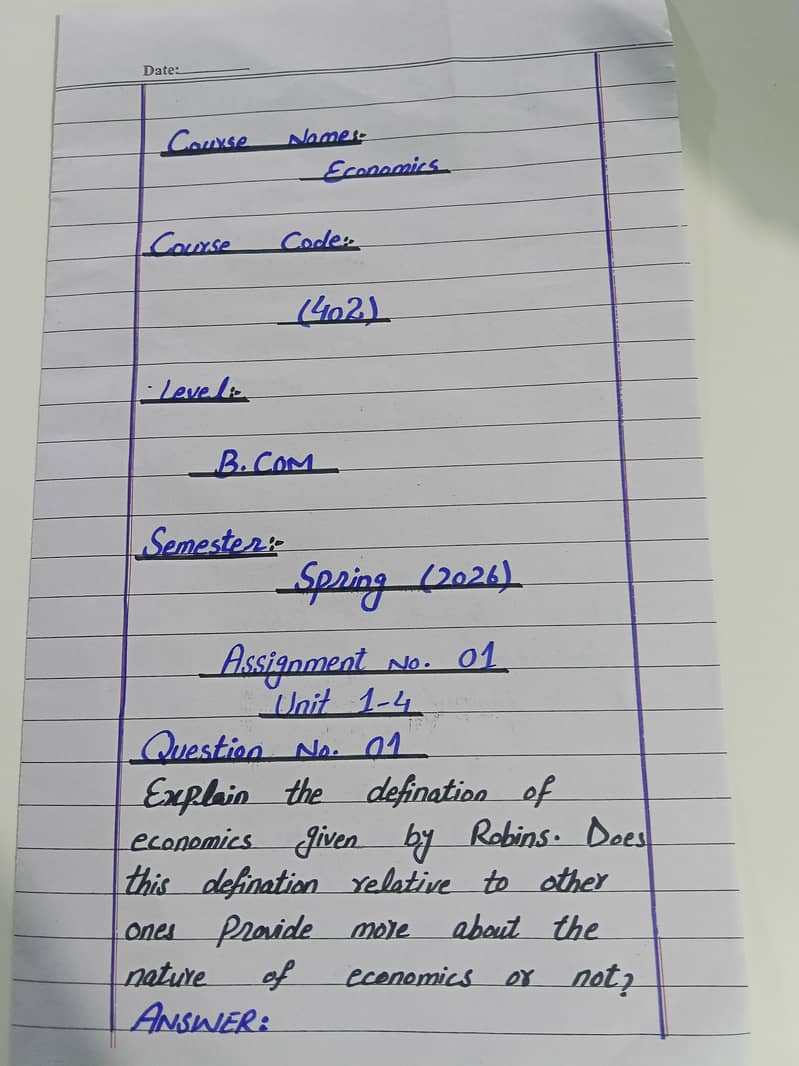 Date:
Course Name:-
Economics
Course Code:-
(402)
Level:-
B.COM
Semester:-
Spring (2026)
Assignment No. 01
Unit 1-4
Question No. 01
Explain the defination of
economics given by Robins. Does
this defination relative to other
ones Provide more about the
nature of economics or not?
ANSWER: